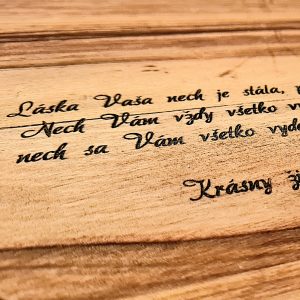 Láska Vaša nech je stála,
Nech Vám vždy všetko
nech sa Vám všetko
Krásny